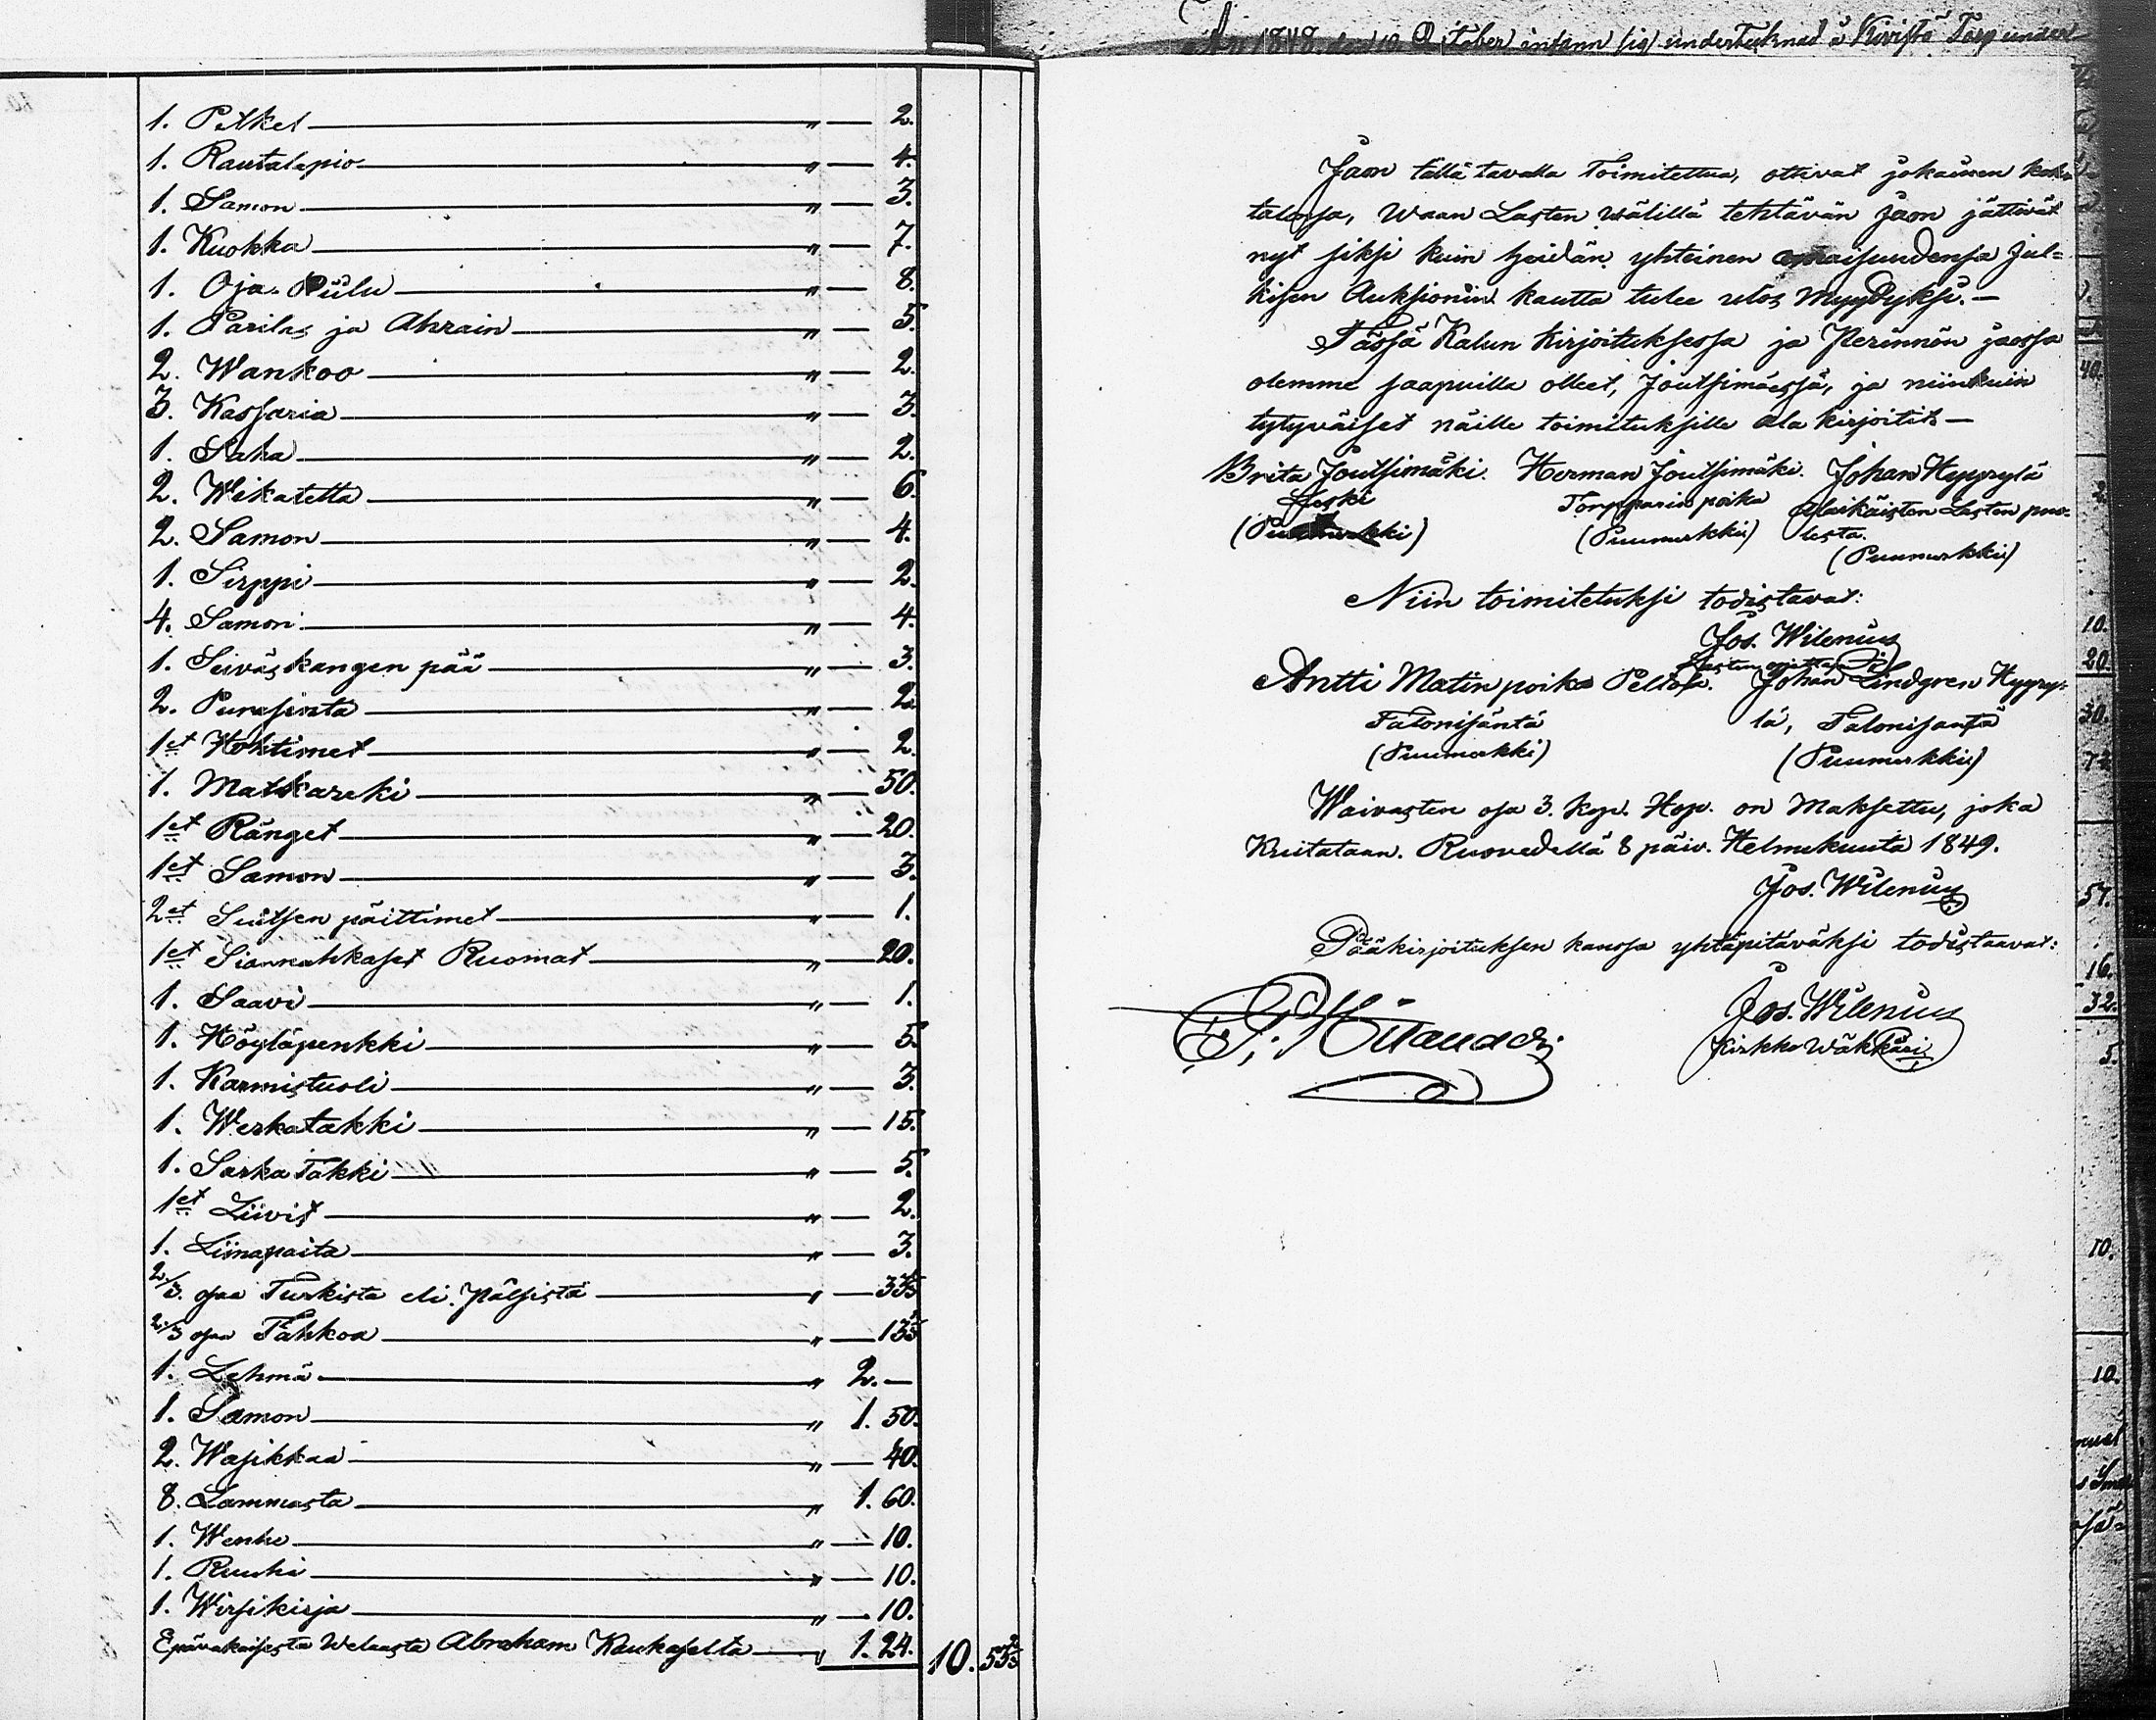 1. Petkel — " — 2.
1. Rautalapio — " — 4.
1. Samon — " — 3.
1. Kuokka — " — 7.
1. Oja. Piilu — " — 8.
1. Parilas ja Ahrain — " — 5.
2. Wankoo — " — 2.
3. Kassaria — " — 3.
1. Saha — " — 2.
2. Wikatetta — " — 6.
2. Samon — " — 4.
1. Sirppi — " — 2.
4. Samon — " — 4.
1. Seiväs kangen pää — " — 3.
2. Purasinta — " — 2.
1et Hohtimet — " — 2.
1. Matkareki — " — 50.
1et Ränget — " — 20.
1et Samon — " — 3.
2et Suitsen päittimet — " — 1.
1et Siannahkaset Ruomat — " — 20.
1. Saavi — " — 1.
1. Höyläpenkki — " — 5.
1. Karmistuoli — " — 3.
1. Werkatakki — " — 15.
1. Sarka Takki — " — 5.
1et Liivit — " — 2.
1. Liinapaita — " — 3.
2/3. osaa Turkista eli. Pälsistä — " — 33⅓
2/3 osaa Tahkoa — " — 13⅓
1. Lehmä — " 2. —
1. Samon — " 1. 50.
2. Wasikkaa — " — 40.
8. Lammasta — " 1. 60.
1. Wenhe — " — 10.
1. Ruuhi — " — 10.
1. Wirsikirja — " — 10.
Epävakaisesta Welasta Abraham Kaukaselta — " 1. 24. 10. 55⅔
An 1848. den 10 October infann sig undertecknad å Kivistö Torp under
Jaon tällä tavalla Toimitettua, ottivat jokainen
talossa, waan Lasten wälillä tehtävän jaon jättivät
nyt siksi kuin heidän yhteinen omaisuudensa Jul=
kisen Auksionin kautta tulee ulos Myydyksi. —
Tässä Kalun Kirjoituksessa ja Perinnön jaossa
olemme saapuilla olleet, Joutsimäessä, ja niinkuin
tytyväiset näille toimituksille ala kirjoitit. —
Brita Joutsimäki. Herman Joutsimäki. Johan Hyyrylä
Leski Torpparin poika Alaikäisten Lasten puo-
(Puumerkki) (Puumerkki) lesta.
(Puumerkki)
Niin toimitetuksi todistavat:
Jos. Wilenius
Lasten opettaja
Antti Matin poika Peltola. Johan Lindgren Hyyry=
Talonisäntä lä, Talonisäntä
(Puumerkki) (Puumerkki)
Waivasten osa 3. kop. Hop. on Maksettu, joka
Kuitataan. Ruovedellä 8 päiv. Helmikuuta 1849.
Jos. Wilenius
Pääkirjoituksen kanssa yhtäpitäväksi todistaavat:
Jos. Wilenius
Kirkko Wäkkäri
40.
10.
20.
30.
57.
16.
32.
5.
10.
10.